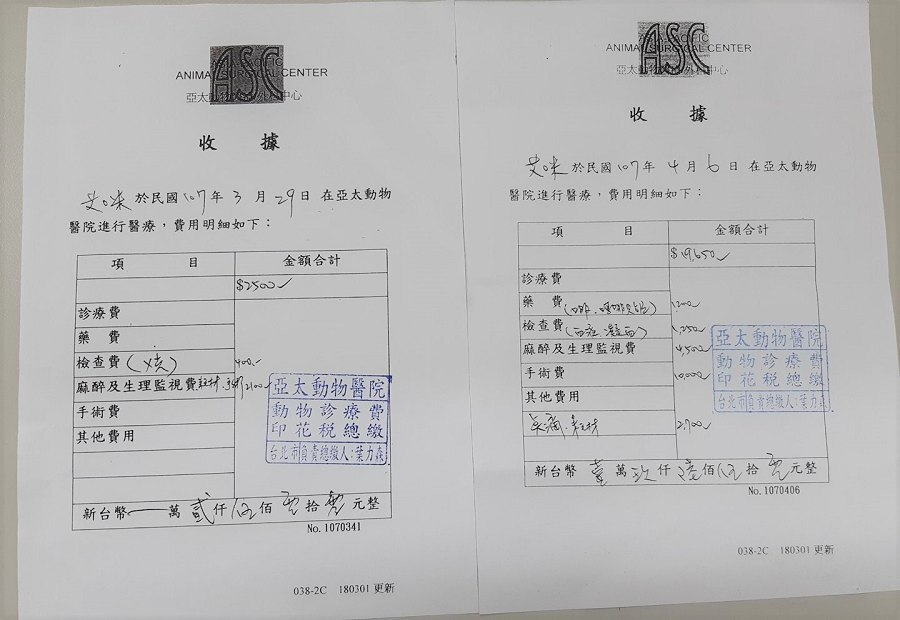 ASC
ANIMAL SURGICAL CENTER
收 據
艾咪 於民國 107 年 3 月 29 日 在亞太動物
醫院進行醫療，費用明細如下：
項 目 金額合計
$2500
診療費
藥 費
檢查費 400.-
麻醉及生理監視費 2100
手術費
其他費用
新台幣 萬 貳 仟 伍 佰 零 拾 零 元整
No. 1070341
亞太動物醫院
動物診療費
印花稅總繳
台北市負責總繳人:葉力森
038-2C 180301 更新
ASC
ANIMAL SURGICAL CENTER
收 據
艾咪 於民國 107 年 4 月 6 日 在亞太動物
醫院進行醫療，費用明細如下：
項 目 金額合計
$19,650
診療費
藥 費 1,200
檢查費 1,250
麻醉及生理監視費 4,500
手術費 10,000
其他費用
2,700
新台幣 壹 萬 玖 仟 陸 佰 伍 拾 零 元整
No. 1070406
亞太動物醫院
動物診療費
印花稅總繳
台北市負責總繳人:葉力森
038-2C 180301 更新